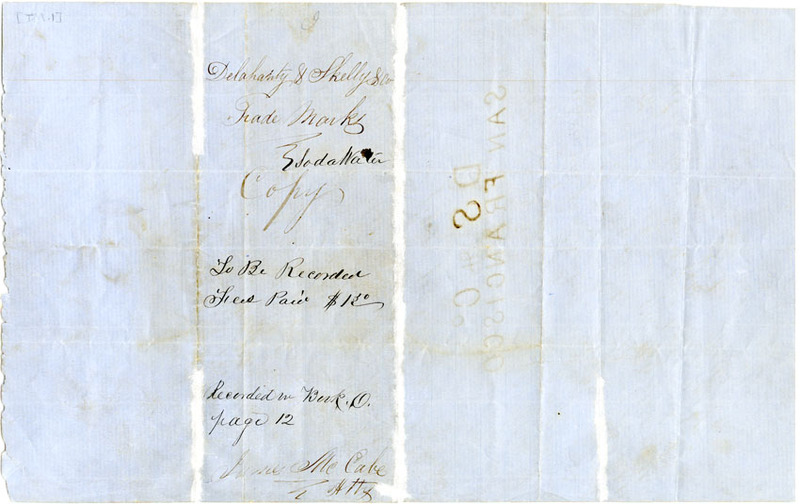 [T.M.1]
Delahanty & Skelly & Co
Trade Marks
Soda Water
Copy
To Be Recorded
Fees Paid $1 50
Recorded in Book. O.
page 12
James Mc Cabe
D S & Co
SAN FRANCISCO